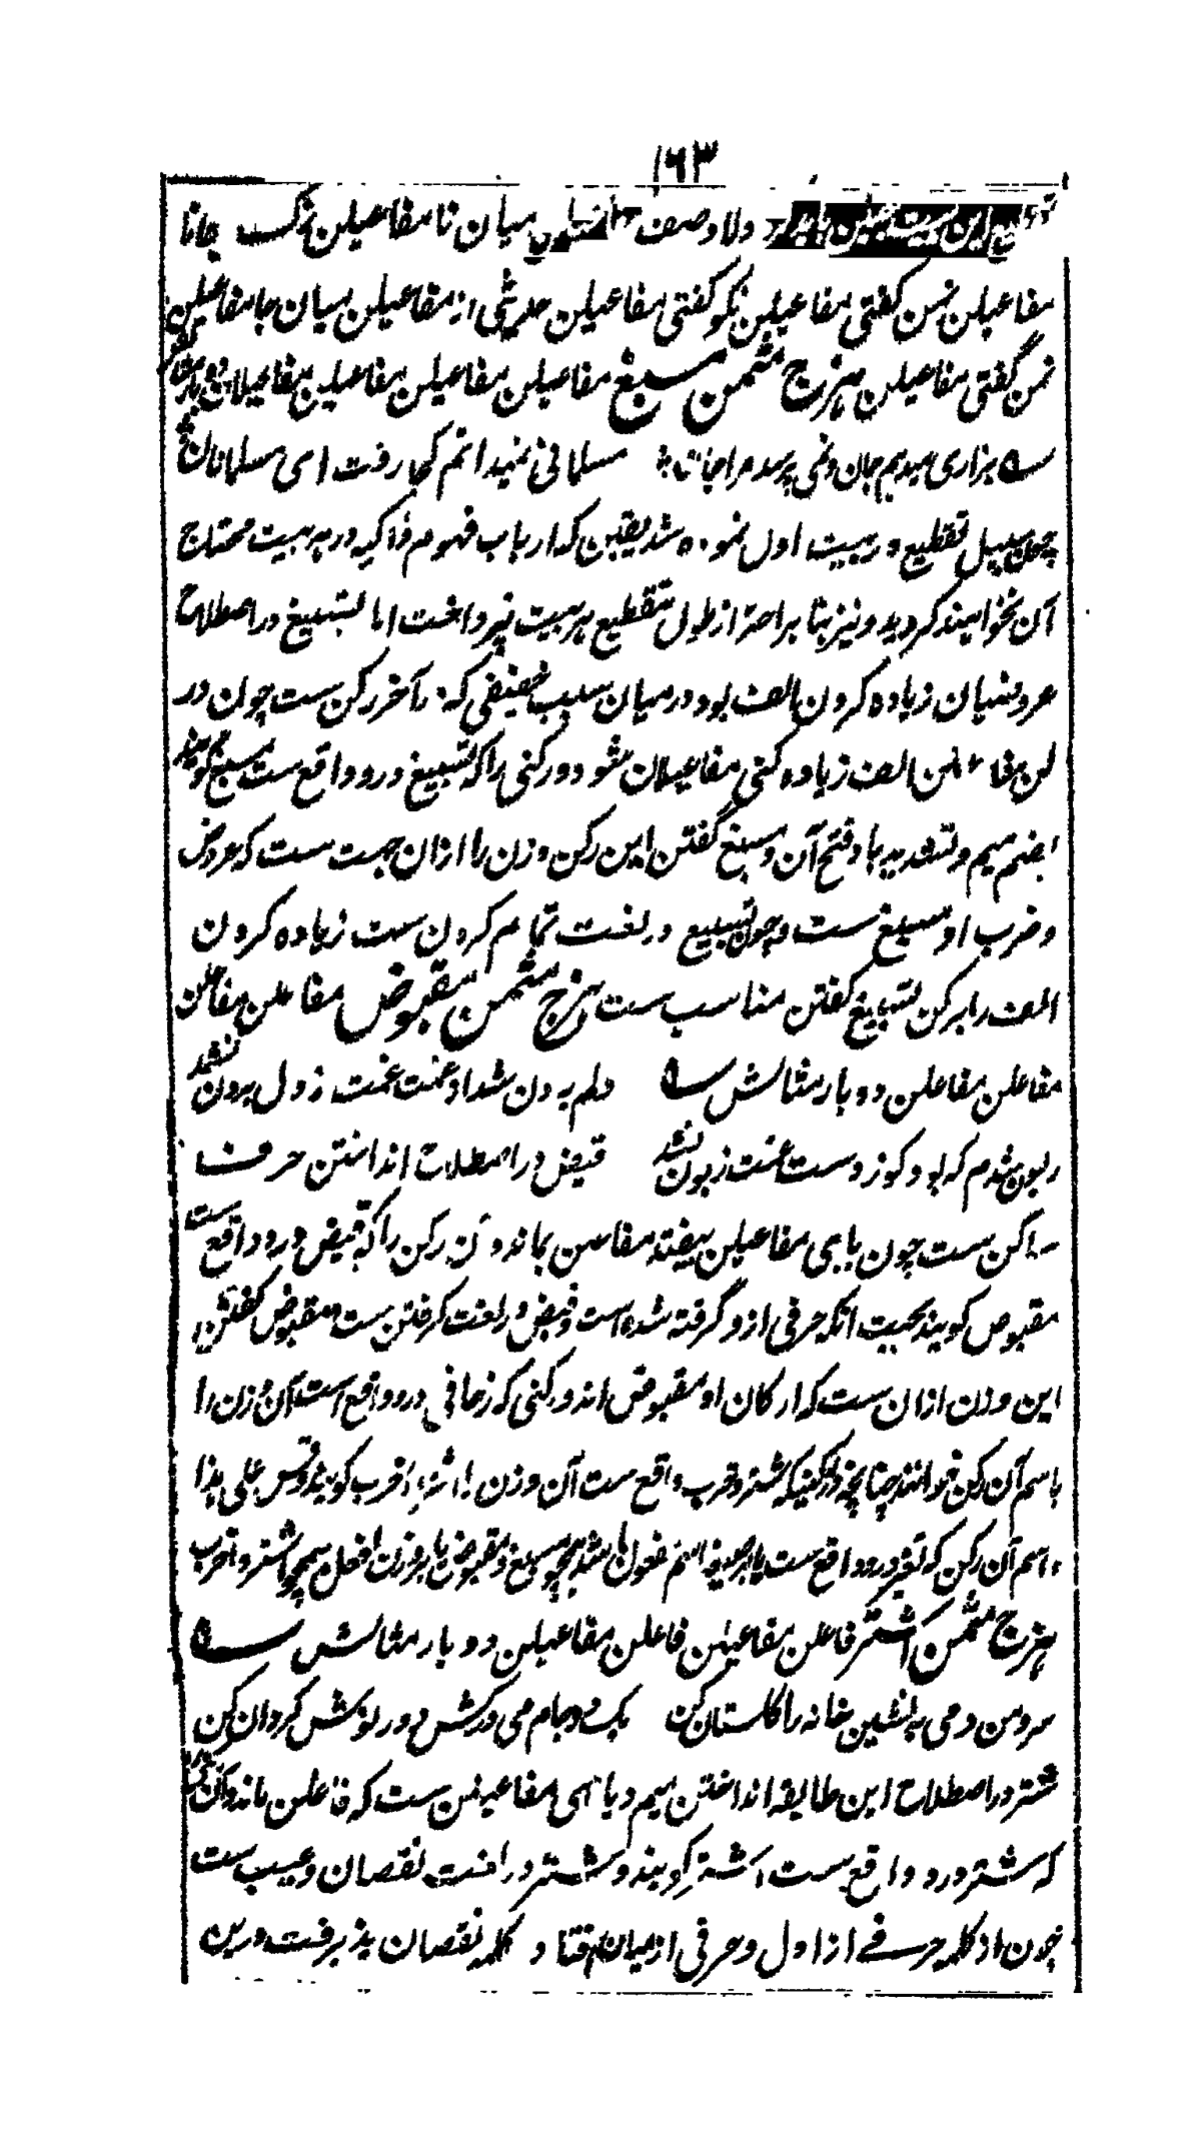 ۱۶۳
دلا وصف میان نا مفاعیلن نزکت جانا
مفاعیلن نمن گفتی مفاعیلن نکو گفتی مفاعیلن حدیثی از مفاعیلن میان جا مفاعیلن
نمن گفتی مفاعیلن هزج مثمن مسبغ مفاعیلن مفاعیلن مفاعیلن مفاعیلان دو بار
بزاری میدهم جان و نمی پرسد مرا جانان مسلمانی نمیدانم کجا رفت ای مسلمانان
چون سبیل تقطیع در بیت اول نموده شد یقین که ارباب فهوم ذاکیه در هر بیت محتاج
آن نخواهند گردید و نیز بنا بر احتراز طول بتقطیع هر بیت نپرداخت اما تسبیغ در اصطلاح
عروضیان زیاده کردن الف بود در میان سبب خفیفی که در آخر رکن ست چون در
لن مفاعیلن الف زیاده کنی مفاعیلان شود و رکنی را که تسبیغ درو واقع ست مسبغ گویند
بضم میم و تشدید با و فتح آن و مسبغ گفتن این رکن وزن را ازان جهت ست که عروض
و ضرب او مسبغ ست و چون تسبیغ در لغت تمام کردن ست زیاده کردن
الف را بر رکن تسبیغ گفتن مناسب ست هزج مثمن مقبوض مفاعلن مفاعلن
مفاعلن مفاعلن دو بار مثالش دلم برون شد از غمت غمت ز دل برون نشد
زبون شدم که بود کو ز دست غمت زبون نشد قبض در اصطلاح انداختن حرف
ساکن ست چون یای مفاعیلن بیفتد مفاعلن بماند و آن رکن را که قبض درو واقع ست
مقبوض گویند بجهت آنکه حرفی از و گرفته شده است و قبض در لغت گرفتن ست مقبوض گفتن
این وزن ازان ست که ارکان او مقبوض اند و رکنی که زحافی درو واقع است آن وزن را
باسم آن رکن خوانند چنانچه در رکنیکه شتر و خرب واقع ست آن وزن را اشتر و اخرب گویند و قس علی هذا
و اسم آن رکن که تغیر درو واقع ست یا بر صیغه اسم مفعول باشد همچو مسبغ و مقبوض یا بر وزن افعل همچو اشتر و اخرب
هزج مثمن اشتر فاعلن مفاعیلن فاعلن مفاعیلن دو بار مثالش
سرو من دمی بنشین خانه را گلستان کن یک دو جام می درکش دور نوکش گردان کن
شتر در اصطلاح این طایفه انداختن میم و یا از مفاعیلن ست که فاعلن ماند و آن رکن
که شتر درو واقع ست اشتر گویند و شتر در لغت نقصان و عیب ست
چون از کلمه حرفے از اول و حرفی از میان افتاد کلمه نقصان پذیرفت درین